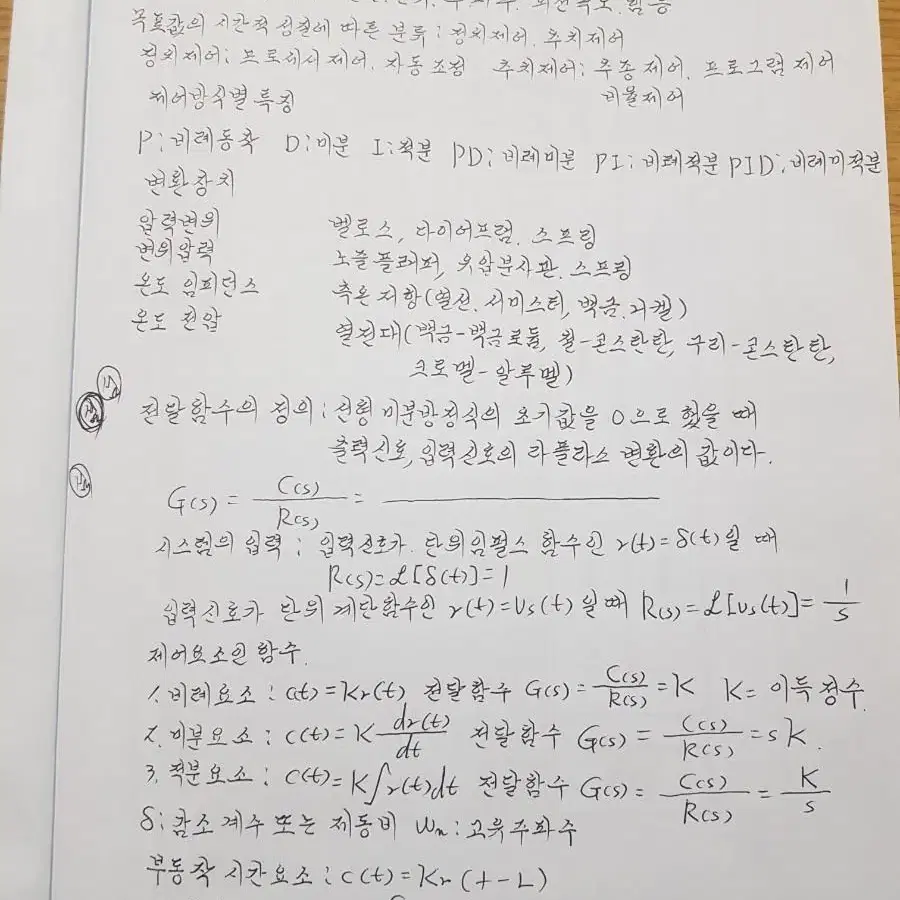 목표값의 시간적 성질에 따른 분류 : 정치제어. 추치제어
정치제어; 프로세서 제어. 자동조정 추치제어: 추종제어. 프로그램 제어
제어방식별 특징 비율제어
P;비례동작 D;미분 I;적분 PD; 비례미분 PI; 비례적분 PID; 비례미적분
변환장치
압력변위 벨로스, 다이어프램. 스프링
변위압력 노즐플래퍼, 유압분사관. 스프링
온도 임피던스 측온저항(열선. 서미스터, 백금. 니켈)
온도 전압 열전대(백금-백금로듐, 철-콘스탄탄, 구리-콘스탄탄,
크로멜-알루멜)
전달함수의 정의 ; 선형 미분방정식의 초기값을 0으로 했을 때
출력신호, 입력신호의 라플라스 변환의 값이다.
G(s) = C(s)/R(s) =
시스템의 입력 ; 입력신호가 단위임펄스 함수인 r(t)=δ(t)일 때
R(s)=ℒ[δ(t)]=1
입력신호가 단위 계단함수인 r(t)=Us(t) 일때 R(s)=ℒ[us(t)]=1/s
제어요소인 함수.
1. 비례요소 ; c(t)=Kr(t) 전달함수 G(s)=C(s)/R(s)=K K= 이득정수
2. 미분요소 ; c(t)=K dr(t)/dt 전달함수 G(s)=C(s)/R(s)=sK.
3. 적분요소 ; c(t)=K∫r(t)dt 전달함수 G(s)=C(s)/R(s)=K/s
δ;감쇠계수 또는 제동비 ωn;고유주파수
부동작 시간요소 ; c(t)=Kr(t-L)